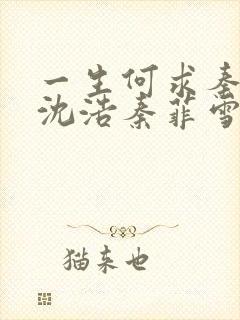 一生何求秦
沈浩秦菲雪
猫来也